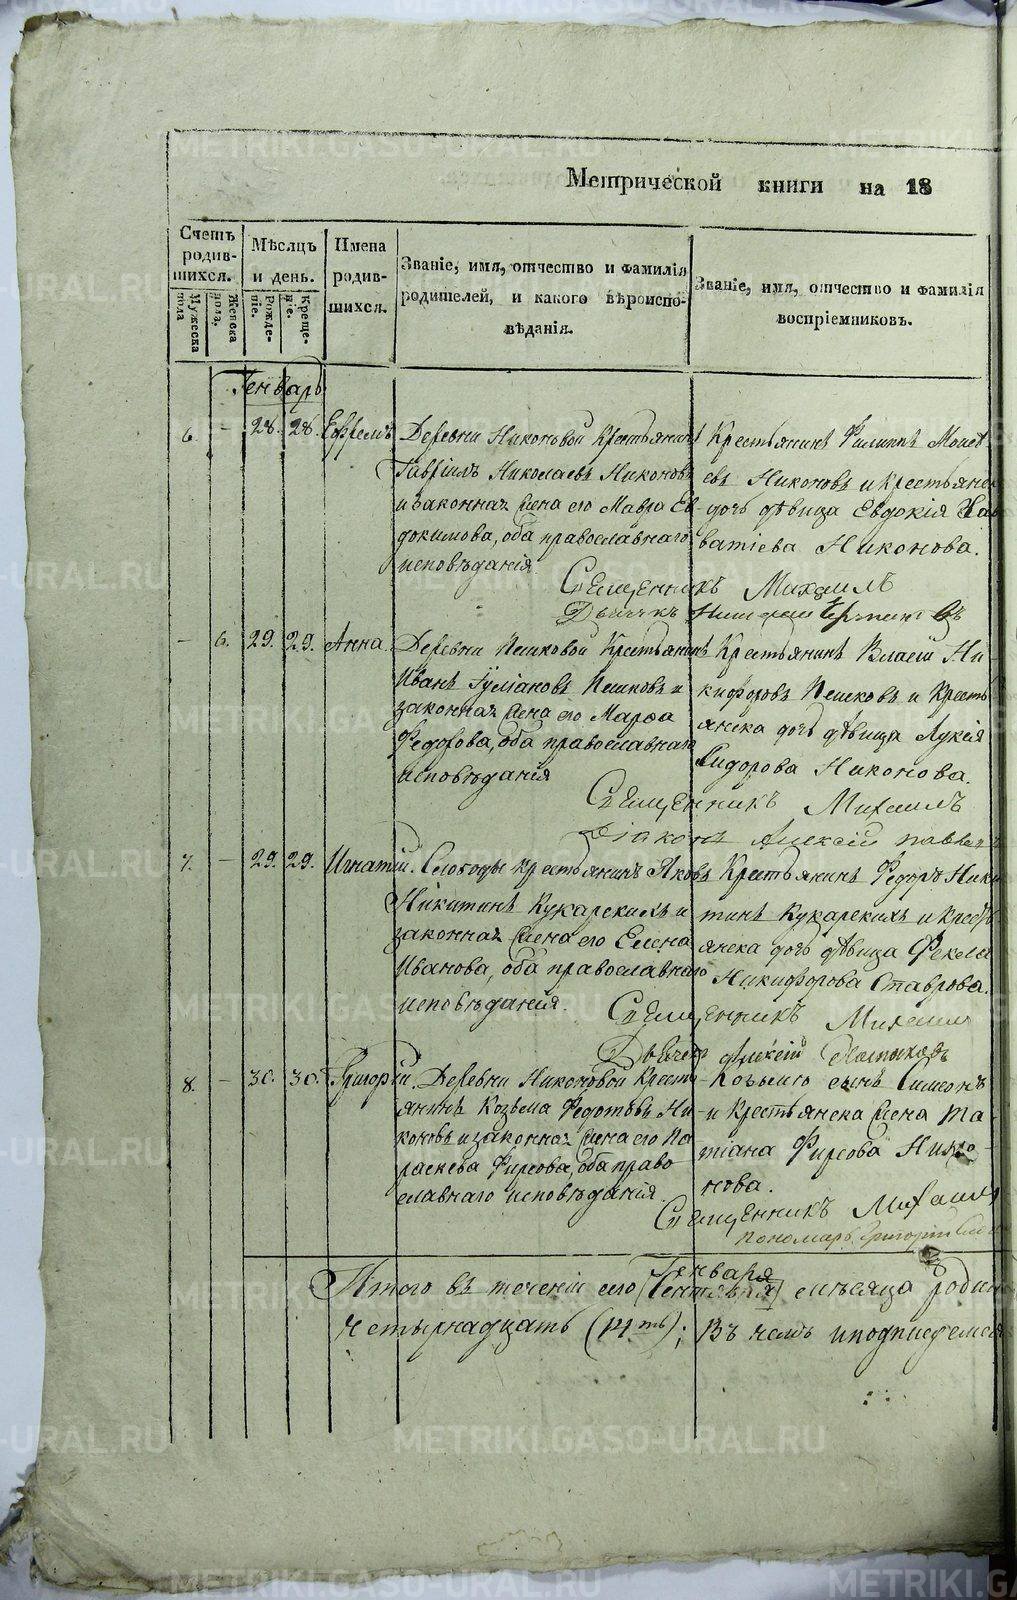 METRIKI.GASO-URAL.RU
Метрической книги на 18
Счетъ родив-шихся.
Мужеска пола
Женска пола,
Мѣсяцъ и день.
Рожде-нiе.
Креще-нiе.
Имена родив-шихся.
Званiе, имя, отчество и фамилiя родителей, и какого вѣроиспо-вѣданiя.
Званiе, имя, отчество и фамилiя воспрiемниковъ.
Генварь
6. - 28. 28. Ефремъ
Деревни Никоновой Крестьянинъ
Гаврiилъ Николаевъ Никоновъ
и законная жена его Мавра Ев-
докимова, оба православнаго
исповѣданiя.
Крестьянинъ Филиппъ Моисѣ-
евъ Никоновъ и крестьянск
дочь дѣвица Евдокiя
ватiева Никонова.
Священникъ Михаилъ
Дьячекъ
- 6. 29. 29. Анна.
Деревни Пешковой Крестьянинъ
Иванъ Iулiановъ Пешковъ и
законная жена его Марѳа
Федорова, оба православнаго
исповѣданiя
Крестьянинъ Власiй Ни-
кифоровъ Пешковъ и кресть
янска дочь дѣвица Лукiя
Сидорова Никонова.
Священникъ Михаилъ
Дiаконъ Алексiй
7. - 29. 29. Игнатiй.
Слободы крестьянинъ Яковъ
Никитинъ Кукарскихъ и
законная жена его Елена
Иванова, оба православнаго
исповѣданiя.
Крестьянинъ Федоръ Ники
тинъ Кукарскихъ и крест
янска дочь дѣвица Фекла
Никифорова Ставрова.
Священникъ Михаилъ
Дьячекъ Алексiй
8. - 30. 30. Григорiй.
Деревни Никоновой Кресть-
янинъ Козьма Федотовъ Ни-
коновъ и законная жена его Па
раскева Фирсова, оба право
славнаго исповѣданiя.
Козьмы сынъ Симеонъ
и Крестьянска жена Та
тiана Фирсова Нико-
нова.
Священникъ Михаилъ
Пономарь Григорiй
Генваря
Итого въ теченiи сего (Сентября) мѣсяца родил
четырнадцать (14ть); Въ чемъ и подписуемся